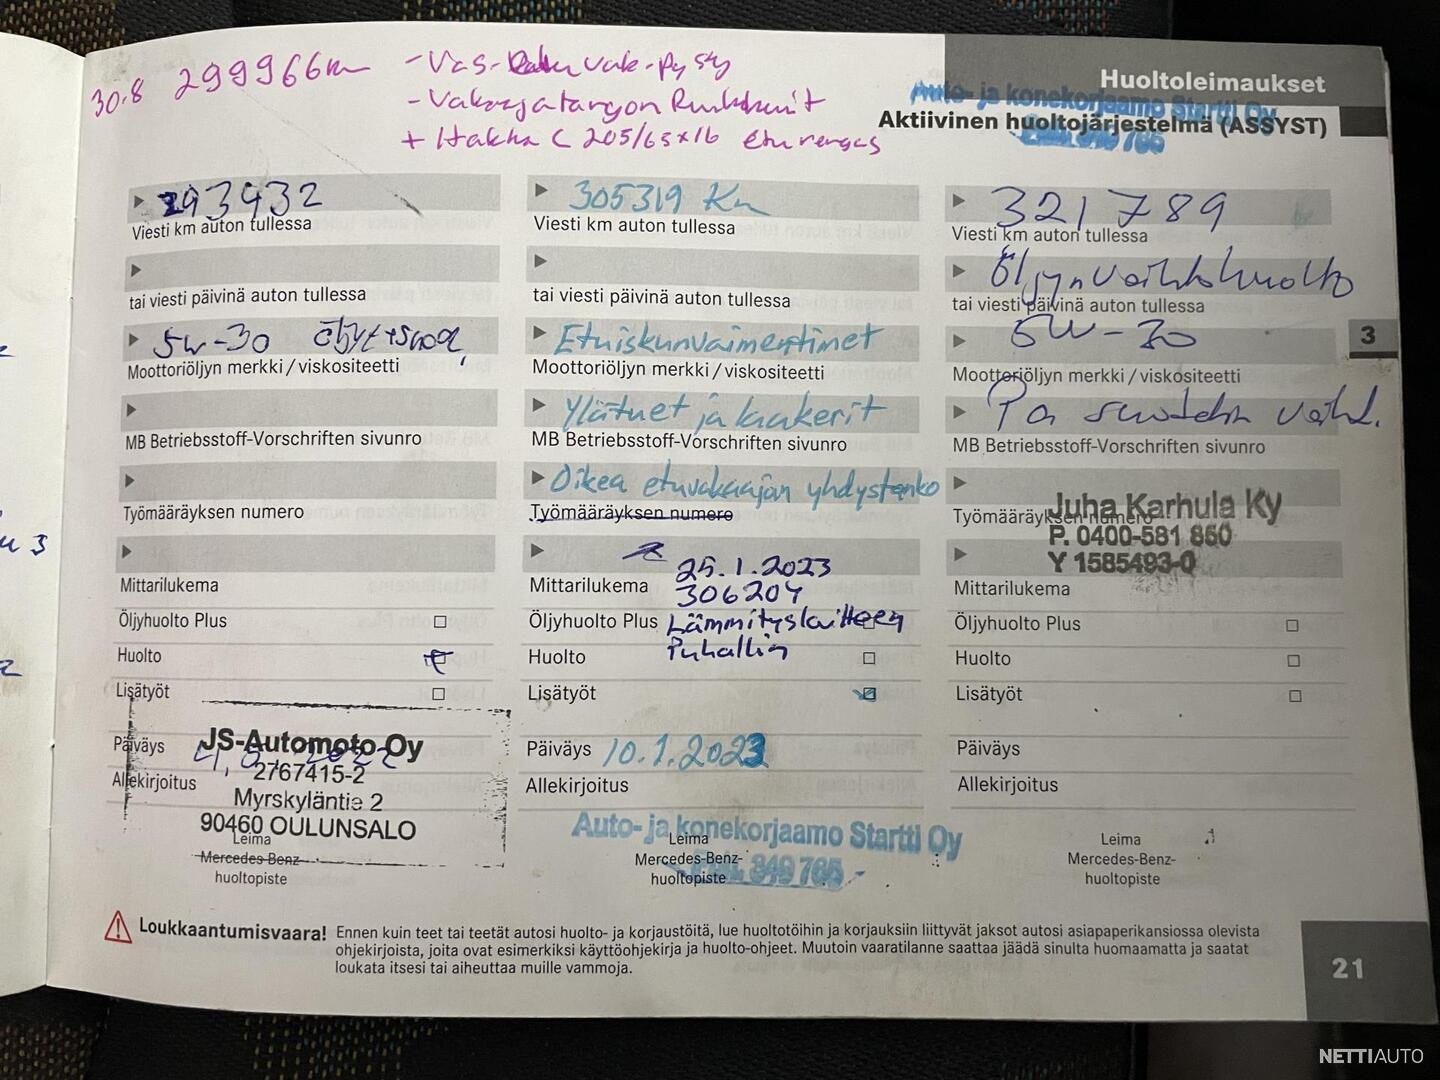 30.8 299966km
- Vas- vak-pysty
- Vakaajatangon
+ Hakka C 205/65x16 eturengas
Huoltoleimaukset
Auto- ja konekorjaamo Startti Oy
Puh. 849 765
Aktiivinen huoltojärjestelmä (ASSYST)
293932
Viesti km auton tullessa
tai viesti päivinä auton tullessa
5W-30 öljyt+suod.
Moottoriöljyn merkki / viskositeetti
MB Betriebsstoff-Vorschriften sivunro
Työmääräyksen numero
Mittarilukema
Öljyhuolto Plus
Huolto
Lisätyöt
Päiväys
Allekirjoitus
JS-Automoto Oy
2767415-2
Myrskyläntie 2
90460 OULUNSALO
Leima
Mercedes-Benz-
huoltopiste
305319 Km
Viesti km auton tullessa
tai viesti päivinä auton tullessa
Etuiskunvaimentimet
Moottoriöljyn merkki / viskositeetti
Ylätuet ja laakerit
MB Betriebsstoff-Vorschriften sivunro
Oikea etuvakaajan yhdystanko
Työmääräyksen numero
25.1.2023
Mittarilukema 306204
Öljyhuolto Plus Lämmityslaitteen
Huolto Puhallin
Lisätyöt
Päiväys 10.1.2023
Allekirjoitus
Auto- ja konekorjaamo Startti Oy
Puh. 849 765
Leima
Mercedes-Benz-
huoltopiste
321789
Viesti km auton tullessa
Öljynvaihtohuolto
tai viesti päivinä auton tullessa
5W-30
Moottoriöljyn merkki / viskositeetti
Pa suodatin vaiht.
MB Betriebsstoff-Vorschriften sivunro
Juha Karhula Ky
Työmääräyksen numero
P. 0400-581 860
Y 1585493-0
Mittarilukema
Öljyhuolto Plus
Huolto
Lisätyöt
Päiväys
Allekirjoitus
Leima
Mercedes-Benz-
huoltopiste
3
Loukkaantumisvaara! Ennen kuin teet tai teetät autosi huolto- ja korjaustöitä, lue huoltotöihin ja korjauksiin liittyvät jaksot autosi asiapaperikansiossa olevista
ohjekirjoista, joita ovat esimerkiksi käyttöohjekirja ja huolto-ohjeet. Muutoin vaaratilanne saattaa jäädä sinulta huomaamatta ja saatat
loukata itsesi tai aiheuttaa muille vammoja.
21
NETTIAUTO